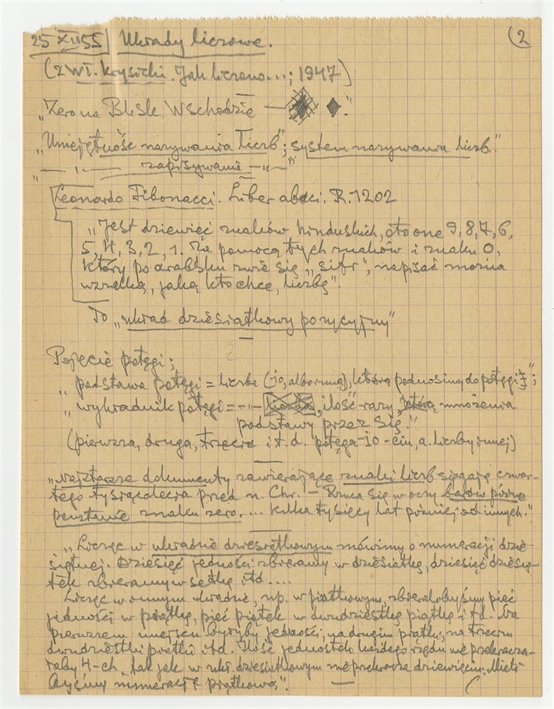 25 XII 55 Układy liczowe. (2
(z Wł. Krysicki. Jak liczono...; 1947)
„Zero na Bliskim Wschodzie —
„Umiejętność nazywania liczb"; system nazywania liczb."
„— „ — zapisywania —„—"
Leonardo Fibonacci. Liber abaci. R. 1202
„Jest dziewięć znaków hinduskich, oto one 9, 8, 7, 6,
5, 4, 3, 2, 1. Za pomocą tych znaków i znaku 0,
który po arabsku zwie się „sifr", napisać można
wszelką, jaką kto chce, liczbę".
To „układ dziesiątkowy pozycyjny"
Pojęcie potęgi;
„podstawa potęgi = liczba (10, albo inna), którą podnosimy do potęgi
„wykładnik potęgi = —„— ilość razy, mnożenia
podstawy przez się."
(pierwsza, druga, trzecia i t.d. potęga 10-ciu, a. liczby innej)
„najstarsze dokumenty zawierające znaki liczb sięgają czwar-
tego tysiąclecia przed n. Chr. – Rzuca się w oczy bardzo późne
powstanie znaku zero.... kilka tysięcy lat później od innych."
„Licząc w układzie dziesiętkowym mówimy o numeracji dzie-
siętnej. Dziesięć jedności zbieramy w dziesiątkę, dziesięć dziesią-
tek zbieramy w setkę itd....
Licząc w innym układzie, np. w piątkowym, zbieralibyśmy pięć
jedności w piątkę, pięć piątek w dwudziestkę piątkę i td. Na
pierwszem miejscu byłyby jedności, na drugim piątki, na trzecim
dwudziestki piątki itd. Ilość jednostek każdego rzędu nie przekracza-
łaby 4-ch, tak jak w ukł. dziesiątkowym nie przekracza dziewięciu. Mieli-
byśmy "numerację piątkową".